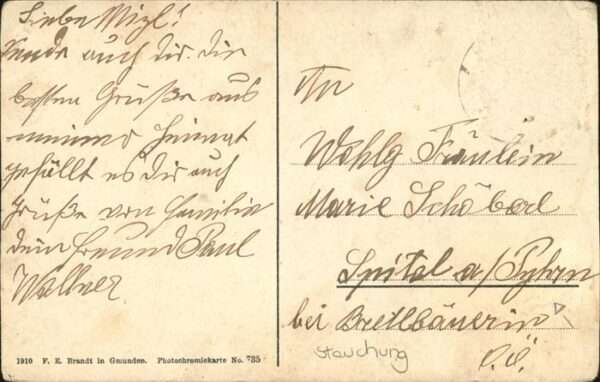 Liebe Mizl!
Sende auch dir die
besten Grüße aus
meiner Heimat
gefällt es Dir auch
Grüße von Familie
dein Freund Paul
Wallner
1910 F. E. Brandt in Gmunden. Photochromiekarte No. 735
An
Wohlg Fräulein
Marie Schöberl
Spital a/Pyhrn
bei Bredlbäuerin
O.Ö.
Stauchung